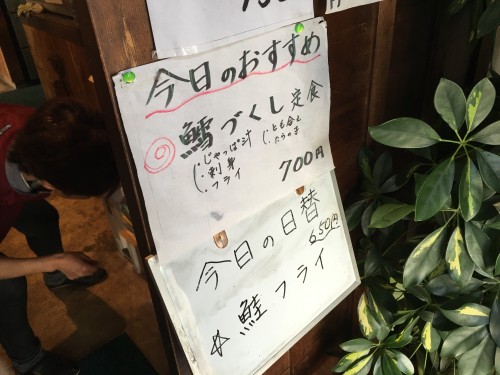 今日のおすすめ
◎鱈づくし定食
・じゃっぱ汁
・刺身
・フライ
・とも会と
たらの子
700円
今日の日替
650円
鮭フライ